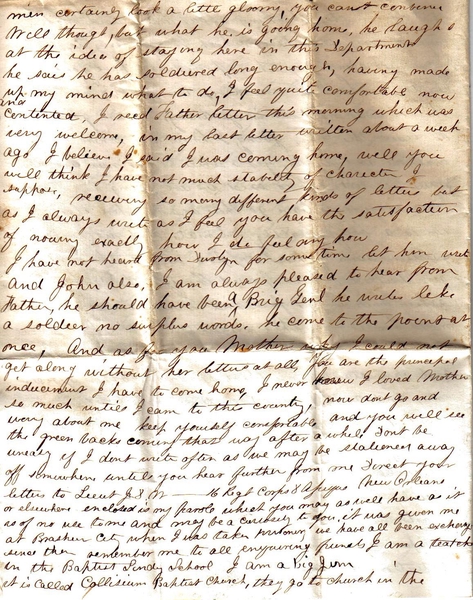 men certainly look a little gloomy, you cant convince
Will though, but what he is going home, he laughs
at the idea of staying here in this Department
he says he has soldiered long enough, having made
up my mind what to do, I feel quite comfortable now
and contented, I recd Father letter this morning which was
very welcome, in my last letter written about a week
ago I believe I said I was coming home, well you
will think I have not much stability of charecter I
suppose, receiving so many different kinds of letters but
as I always write as I feel you have the satisfaction
of nowing exactly how I do feel any how
I have not heard from for some time let him write
and John also, I am always pleased to hear from
Father, he should have been a Brig Genl he writes like
a soldeer no surplus words. he come to the point at
once, And as for you Mother I could not
get along without her letters at all, You are the principel
inducement I have to come home, I never knew I loved Mother
so much untill I cam to this country, now dont go and
worry about me keep yourself comfortable and you will see
the green backs coming that way after a while Dont be
uneasy if I dont write often as we may be stationed away
off somewhere untill you hear further from me Direct your
letters to Lieut J W 16 Regt Corps d Afrique New Orleans
or elsewhere enclosed is my parole which you may as well have as it
is of no use to me and may be a curiosity to you, it was given me
at Brashear City when I was taken prisoner, we have all been exchange
since then remember me to all enquiring friends I am a teacher
in the Baptist Sunday School I am a big Jim
it is Called Collisium Baptist Church, they go to church in the